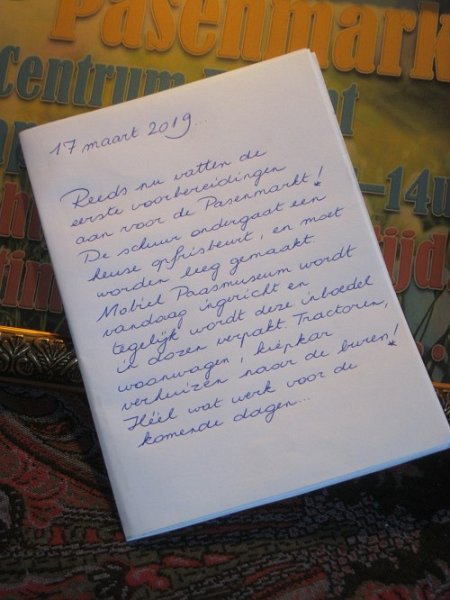 Pasenmark
centrum
14u
17 maart 2019...
Reeds nu vatten de
eerste voorbereidingen
aan voor de Pasenmarkt!
De schuur ondergaat een
heuse opfrisbeurt, en moet
worden leeg gemaakt.
Mobiel Paasmuseum wordt
vandaag ingericht en
tegelijk wordt deze inboedel
in dozen verpakt. Tractoren,
woonwagen, kiepkar
verhuizen naar de buren!
Héél wat werk voor de
komende dagen...